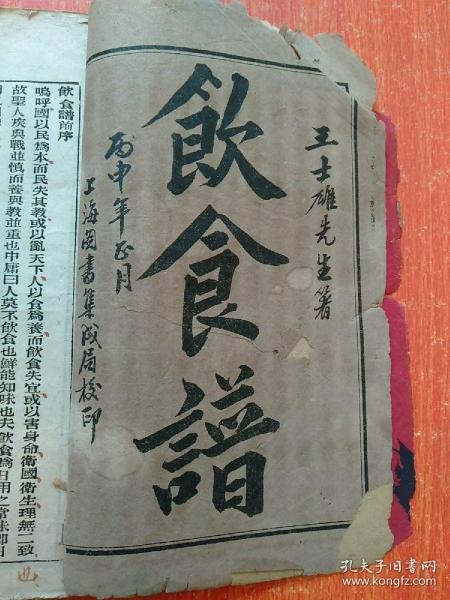 王士雄先生著
飲食譜
丙申年正月
上海圖書集成局校印
飲食譜前序
嗚呼國以民為本而民失其教或以亂天下人以食為養而飲食失宜或以害身命衛國衛生理無二致
故聖人疾與戰並慎而養與教並重也中庸曰人莫不飲食也鮮能知味也夫飲食為日用之常味即日
孔夫子旧书网
www.kongfz.com